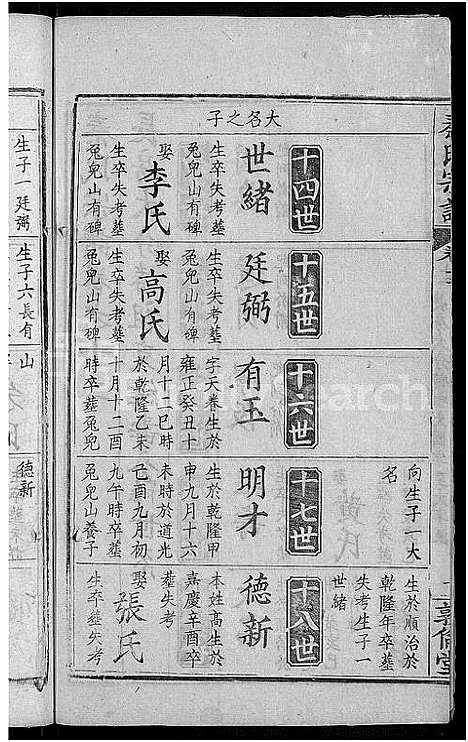 氏宗譜
敦倫堂
向生子一大
名
生於順治於
乾隆年卒塟
失考生子一
世緒
十四世
十五世
十六世
十七世
十八世
大名之子
世緒
生卒失考塟
兔兒山有碑
娶李氏
生卒失考塟
兔兒山有碑
廷弼
生卒失考塟
兔兒山有碑
娶高氏
生卒失考塟
兔兒山有碑
有玉
字天卷生於
雍正癸丑十
月十二巳時
於乾隆乙未
十月十二酉
時卒塟兔兒
明才
生於乾隆甲
申九月十六
未時於道光
己酉九月初
九午時卒塟
兔兒山養子
德新
本姓高生於
嘉慶辛酉卒
塟失考
娶張氏
生卒塟失考
生子一廷弼
生子六長有
山
德新